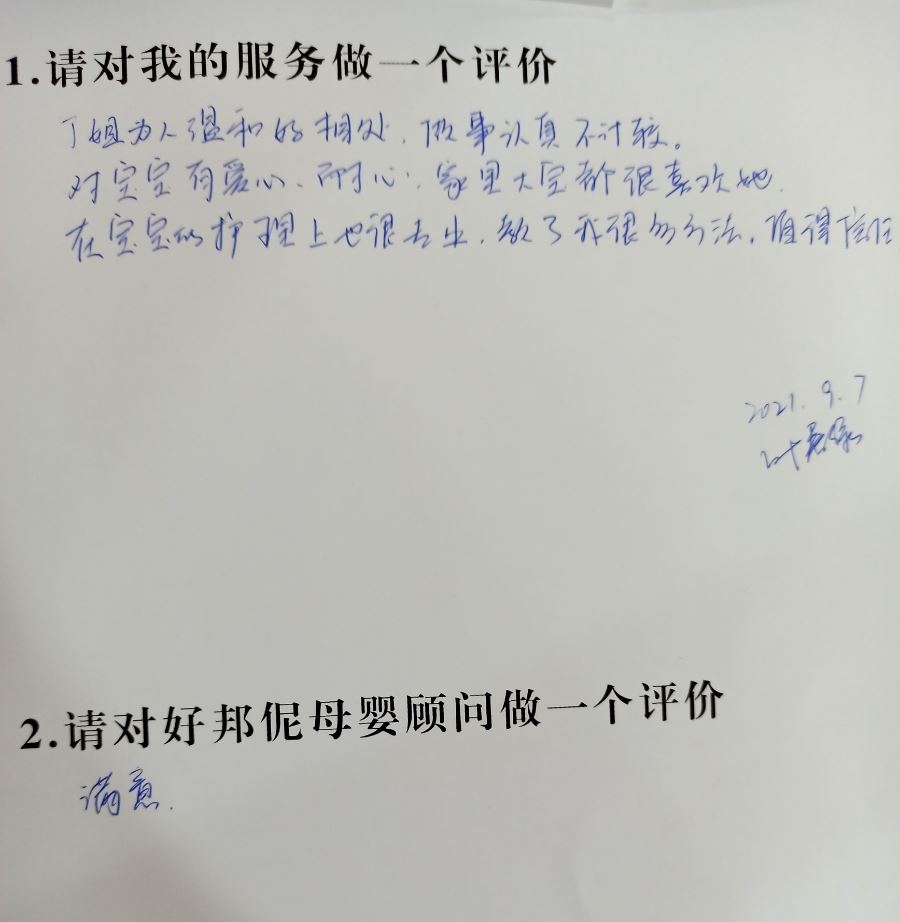 1.请对我的服务做一个评价
丁姐为人温和好相处,做事认真不计较。
对宝宝有爱心、耐心,家里大宝都很喜欢她.
在宝宝的护理上也很专业,教了我很多方法,值得信任
2021.9.7
叶
2.请对好邦伲母婴顾问做一个评价
满意.